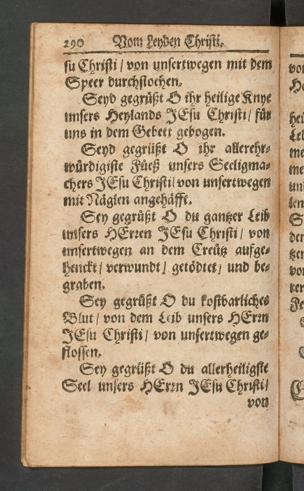 290 Vom Leyden Christi.
su Christi / von unsertwegen mit dem
Speer durchstochen.
Seyd gegrüßt O ihr heilige Knye
unsers Heylands JEsu Christi / für
uns in dem Gebett gebogen.
Seyd gegrüßt O ihr allerehr-
würdigiste Füeß unsers Seeligma-
chers JEsu Christi / von unsertwegen
mit Näglen angehäfft.
Sey gegrüßt O du gantzer Leib
unsers HErren JEsu Christi / von
unsertwegen an dem Creütz aufge-
henckt / verwundt / getödtet / und be-
graben.
Sey gegrüßt O du kostbarliches
Blut / von dem Leib unsers HErrn
JEsu Christi / von unsertwegen ge-
flossen.
Sey gegrüßt O du allerheiligste
Seel unsers HErrn JEsu Christi /
von